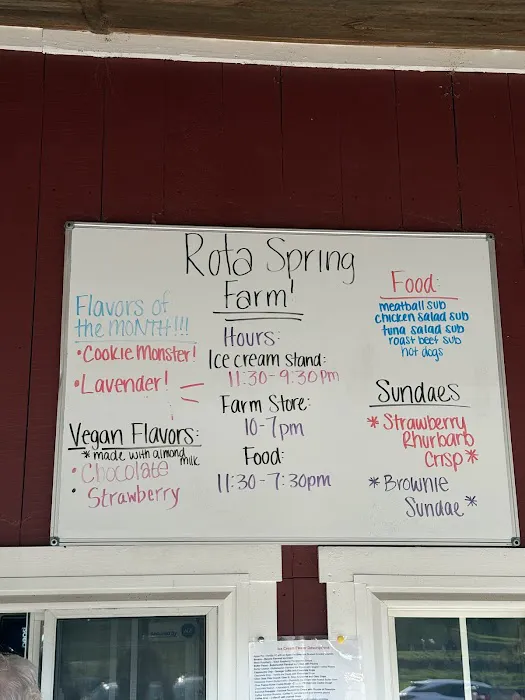 Rota Spring
Farm'
Flavors of
the MONTH!!!
• Cookie Monster!
• Lavender!
Vegan Flavors:
* made with almond
milk
• Chocolate
• Strawberry
Hours:
Ice cream stand:
11:30-9:30pm
Farm Store:
10-7pm
Food:
11:30-7:30pm
Food:
meatball sub
chicken salad sub
tuna salad sub
roast beef sub
hot dogs
Sundaes
* Strawberry
Rhurbarb
Crisp *
* Brownie
Sundae *